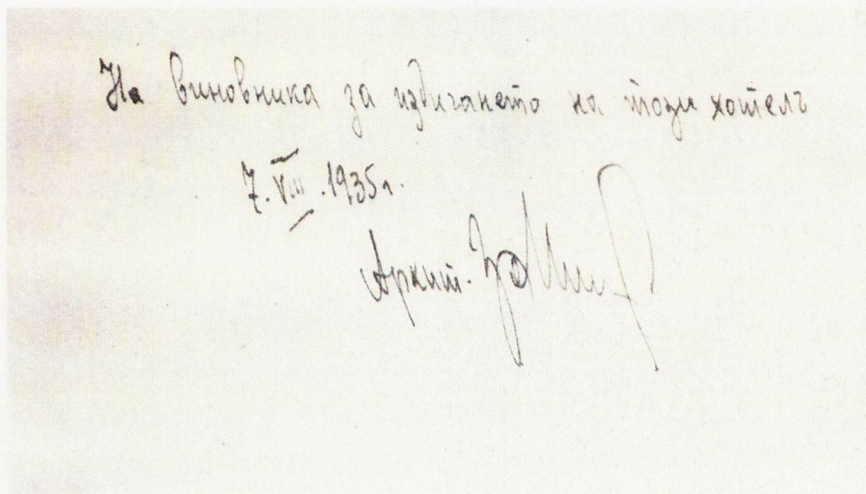 На виновника за издигането на този хотелъ
7.VIII.1935г.
Архит.